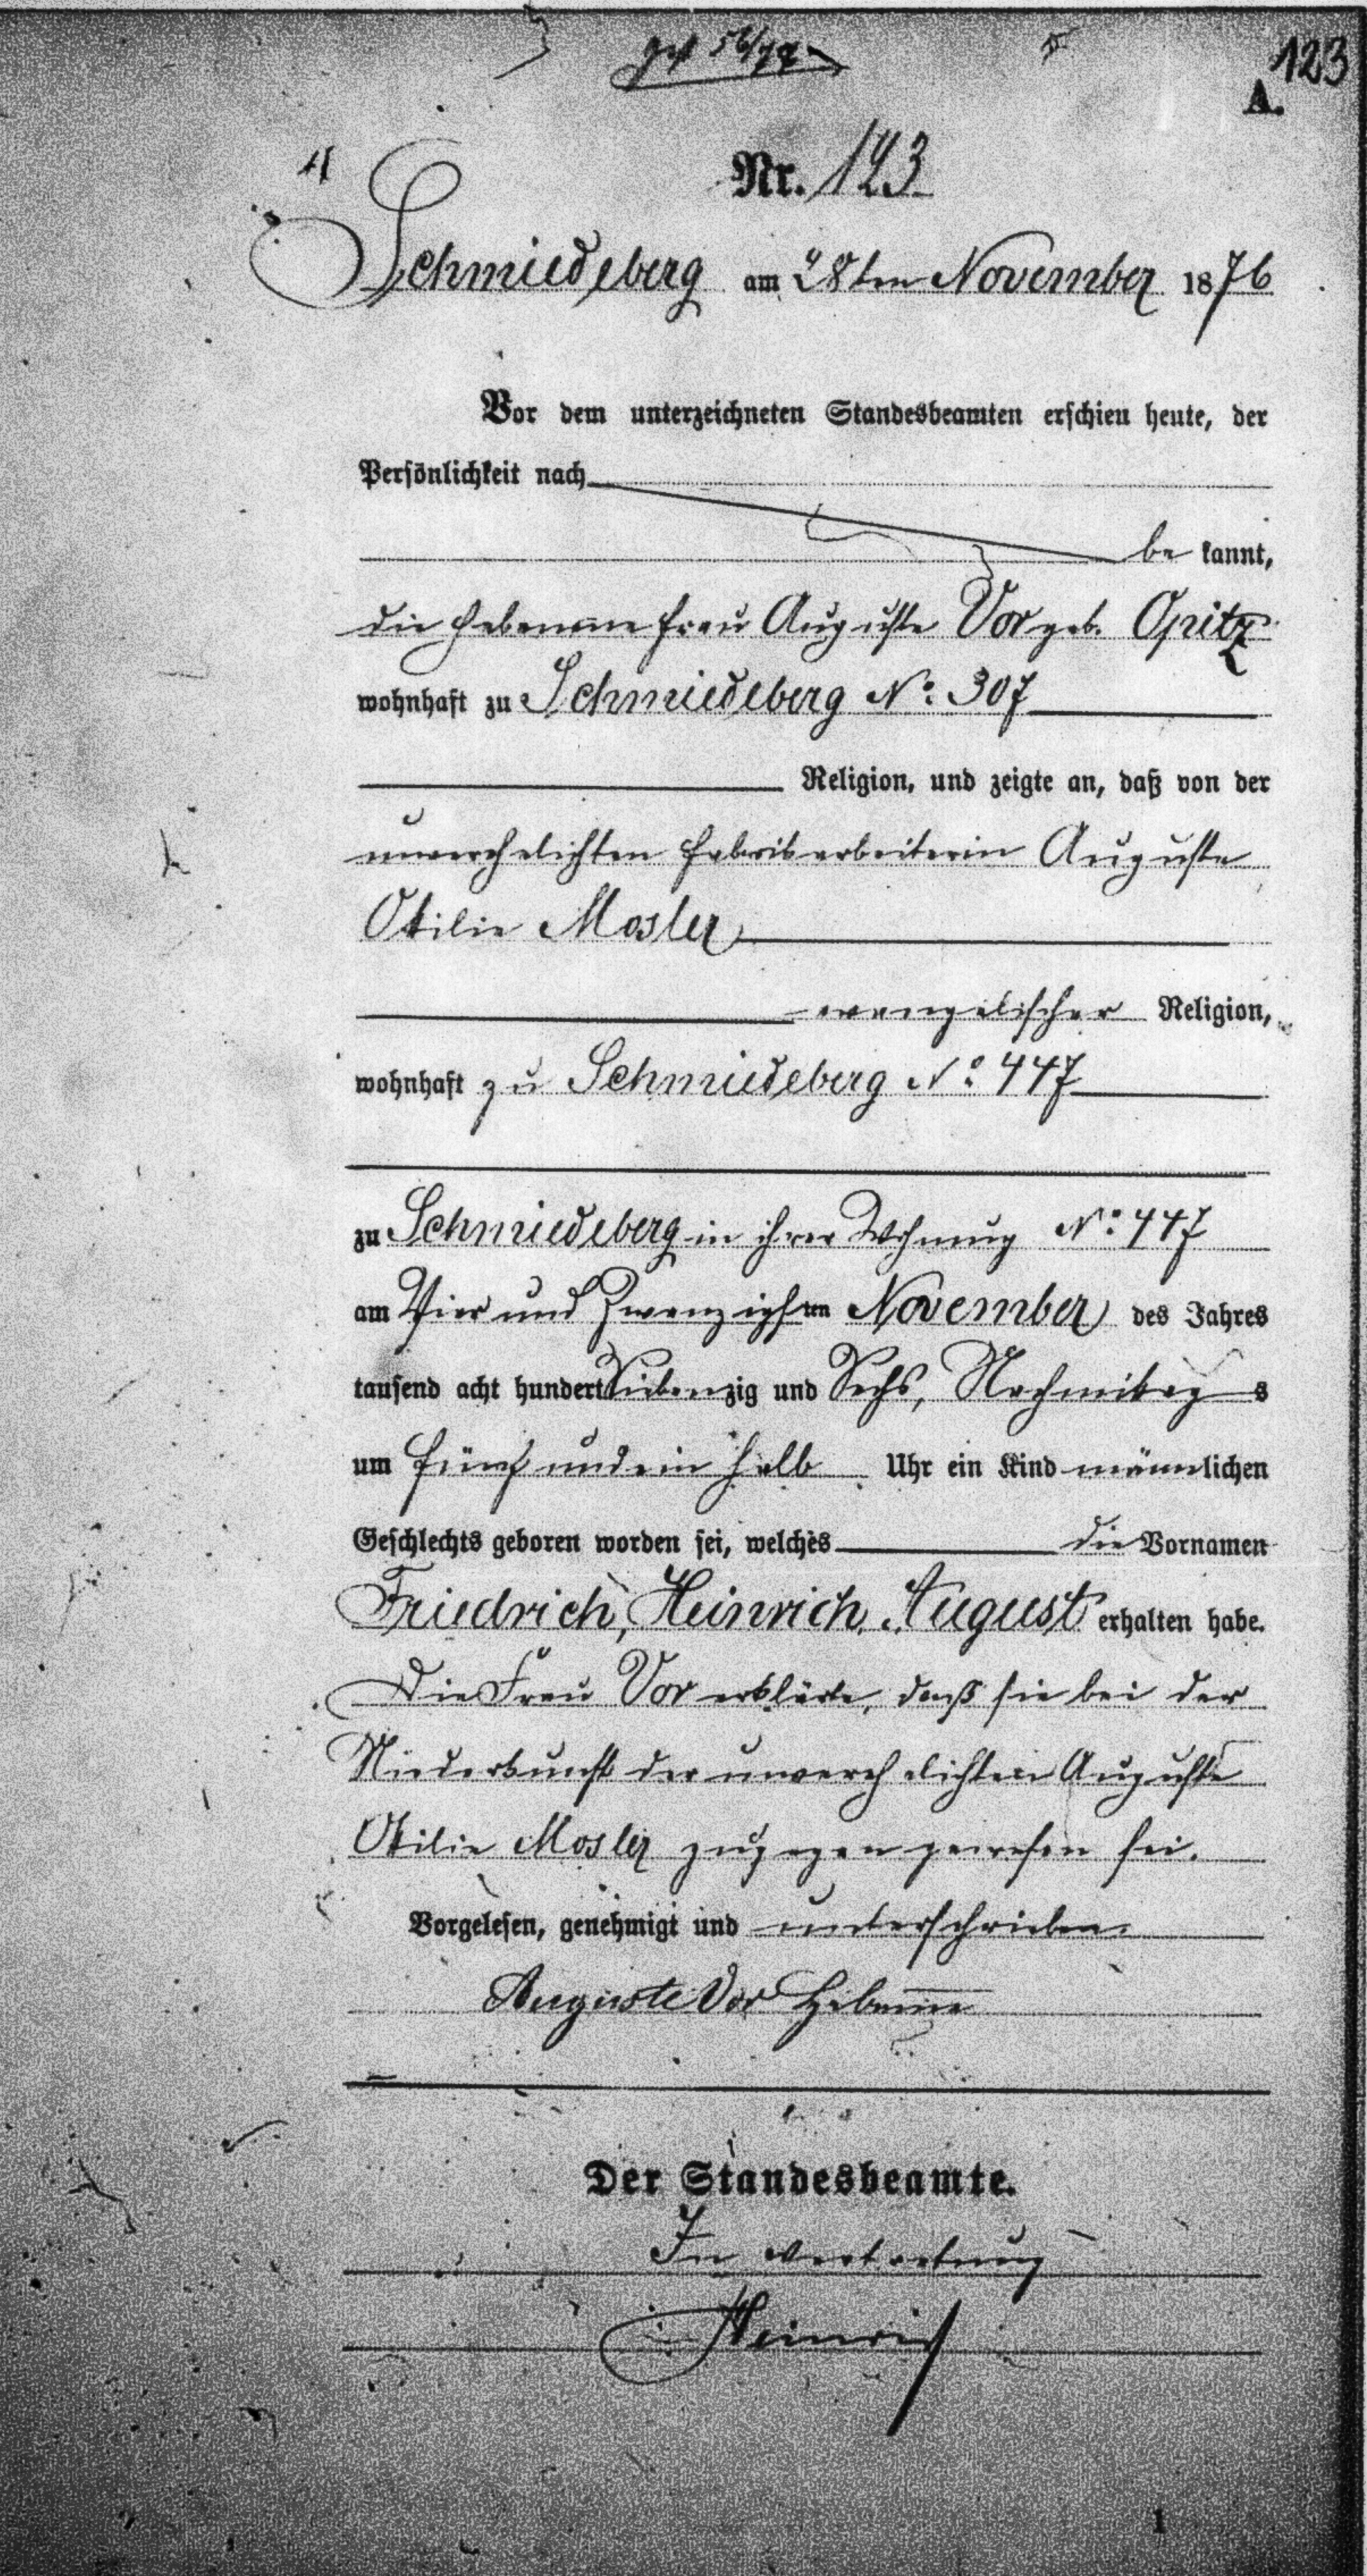 123
A.
Nr. 123
Schmiedeberg am 28ten November 1876
Vor dem unterzeichneten Standesbeamten erschien heute, der
Persönlichkeit nach
be kannt,
die Hebamme Frau Auguste Vor geb. Opitz
wohnhaft zu Schmiedeberg No: 307
Religion, und zeigte an, daß von der
unverehelichten Fabrikarbeiterin Auguste
Otilie Mosler
evangelischer Religion,
wohnhaft zu Schmiedeberg No: 447
zu Schmiedeberg in ihrer Wohnung No: 447
am Vier und Zwanzigsten November des Jahres
tausend acht hundert Siebenzig und Sechs, Nachmittags
um fünf und ein halb Uhr ein Kind männlichen
Geschlechts geboren worden sei, welches die Vornamen
Friedrich, Heinrich, August erhalten habe.
Die Frau Vor erklärte, daß sie bei der
Niederkunft der unverehelichten Auguste
Otilie Mosler zugegen gewesen sei.
Vorgelesen, genehmigt und unterschrieben.
Auguste Vor Hebamme
Der Standesbeamte.
In Vertretung
1